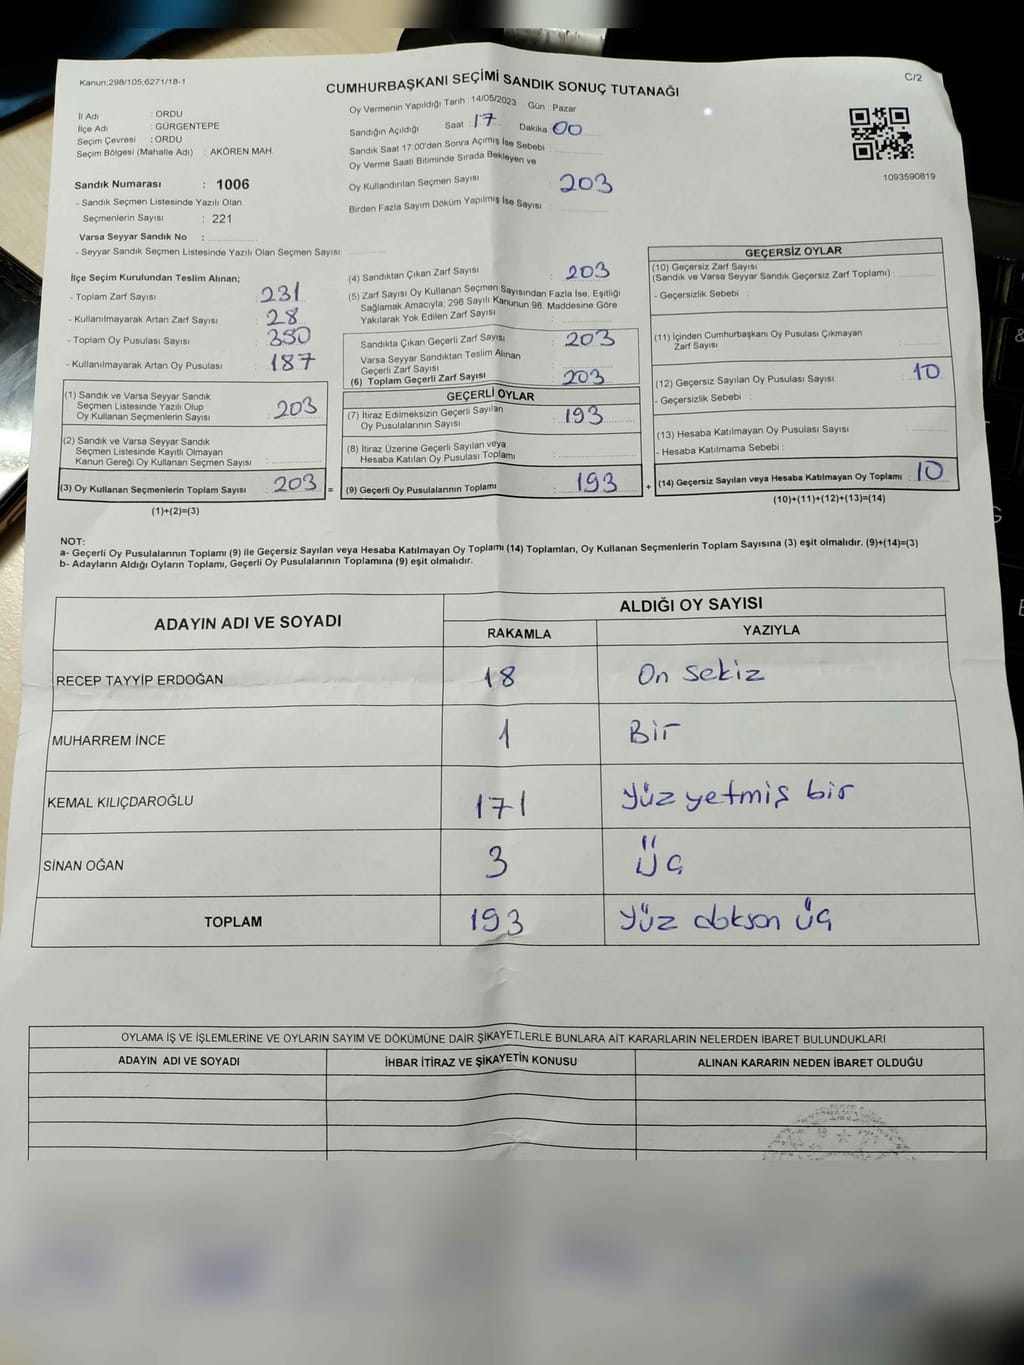 Kanun:298/105;6271/18-1
C/2
CUMHURBAŞKANI SEÇİMİ SANDIK SONUÇ TUTANAĞI
İl Adı : ORDU
İlçe Adı : GÜRGENTEPE
Seçim Çevresi : ORDU
Seçim Bölgesi (Mahalle Adı) : AKÖREN MAH.
Sandık Numarası : 1006
- Sandık Seçmen Listesinde Yazılı Olan
Seçmenlerin Sayısı : 221
Varsa Seyyar Sandık No :
- Seyyar Sandık Seçmen Listesinde Yazılı Olan Seçmen Sayısı:
Oy Vermenin Yapıldığı Tarih :14/05/2023 Gün : Pazar
Sandığın Açıldığı Saat : 17 Dakika : 00
Sandık Saat 17:00'den Sonra Açımış İse Sebebi :
Oy Verme Saati Bitiminde Sırada Bekleyen ve
Oy Kullandırılan Seçmen Sayısı : 203
Birden Fazla Sayım Döküm Yapılmış İse Sayısı :
1093590819
İlçe Seçim Kurulundan Teslim Alınan;
- Toplam Zarf Sayısı : 231
- Kullanılmayarak Artan Zarf Sayısı : 28
- Toplam Oy Pusulası Sayısı : 390
- Kullanılmayarak Artan Oy Pusulası : 187
(1) Sandık ve Varsa Seyyar Sandık
Seçmen Listesinde Yazılı Olup
Oy Kullanan Seçmenlerin Sayısı : 203
(2) Sandık ve Varsa Seyyar Sandık
Seçmen Listesinde Kayıtlı Olmayan
Kanun Gereği Oy Kullanan Seçmen Sayısı :
(3) Oy Kullanan Seçmenlerin Toplam Sayısı : 203 =
(1)+(2)=(3)
(4) Sandıktan Çıkan Zarf Sayısı : 203
(5) Zarf Sayısı Oy Kullanan Seçmen Sayısından Fazla İse, Eşitliği
Sağlamak Amacıyla; 298 Sayılı Kanunun 98. Maddesine Göre
Yakılarak Yok Edilen Zarf Sayısı :
Sandıkta Çıkan Geçerli Zarf Sayısı : 203
Varsa Seyyar Sandıktan Teslim Alınan
Geçerli Zarf Sayısı :
(6) Toplam Geçerli Zarf Sayısı : 203
GEÇERLİ OYLAR
(7) İtiraz Edilmeksizin Geçerli Sayılan
Oy Pusulalarının Sayısı : 193
(8) İtiraz Üzerine Geçerli Sayılan veya
Hesaba Katılan Oy Pusulası Toplamı :
(9) Geçerli Oy Pusulalarının Toplamı : 193 +
GEÇERSİZ OYLAR
(10) Geçersiz Zarf Sayısı
(Sandık ve Varsa Seyyar Sandık Geçersiz Zarf Toplamı) :
- Geçersizlik Sebebi :
(11) İçinden Cumhurbaşkanı Oy Pusulası Çıkmayan
Zarf Sayısı :
(12) Geçersiz Sayılan Oy Pusulası Sayısı : 10
- Geçersizlik Sebebi :
(13) Hesaba Katılmayan Oy Pusulası Sayısı :
- Hesaba Katılmama Sebebi :
(14) Geçersiz Sayılan veya Hesaba Katılmayan Oy Toplamı : 10
(10)+(11)+(12)+(13)=(14)
NOT:
a- Geçerli Oy Pusulalarının Toplamı (9) ile Geçersiz Sayılan veya Hesaba Katılmayan Oy Toplamı (14) Toplamları, Oy Kullanan Seçmenlerin Toplam Sayısına (3) eşit olmalıdır. (9)+(14)=(3)
b- Adayların Aldığı Oyların Toplamı, Geçerli Oy Pusulalarının Toplamına (9) eşit olmalıdır.
ADAYIN ADI VE SOYADI
ALDIĞI OY SAYISI
RAKAMLA YAZIYLA
RECEP TAYYİP ERDOĞAN 18 On sekiz
MUHARREM İNCE 1 Bir
KEMAL KILIÇDAROĞLU 171 Yüz yetmiş bir
SİNAN OĞAN 3 Üç
TOPLAM 193 Yüz doksan üç
OYLAMA İŞ VE İŞLEMLERİNE VE OYLARIN SAYIM VE DÖKÜMÜNE DAİR ŞİKAYETLERLE BUNLARA AİT KARARLARIN NELERDEN İBARET BULUNDUKLARI
ADAYIN ADI VE SOYADI İHBAR İTİRAZ VE ŞİKAYETİN KONUSU ALINAN KARARIN NEDEN İBARET OLDUĞU